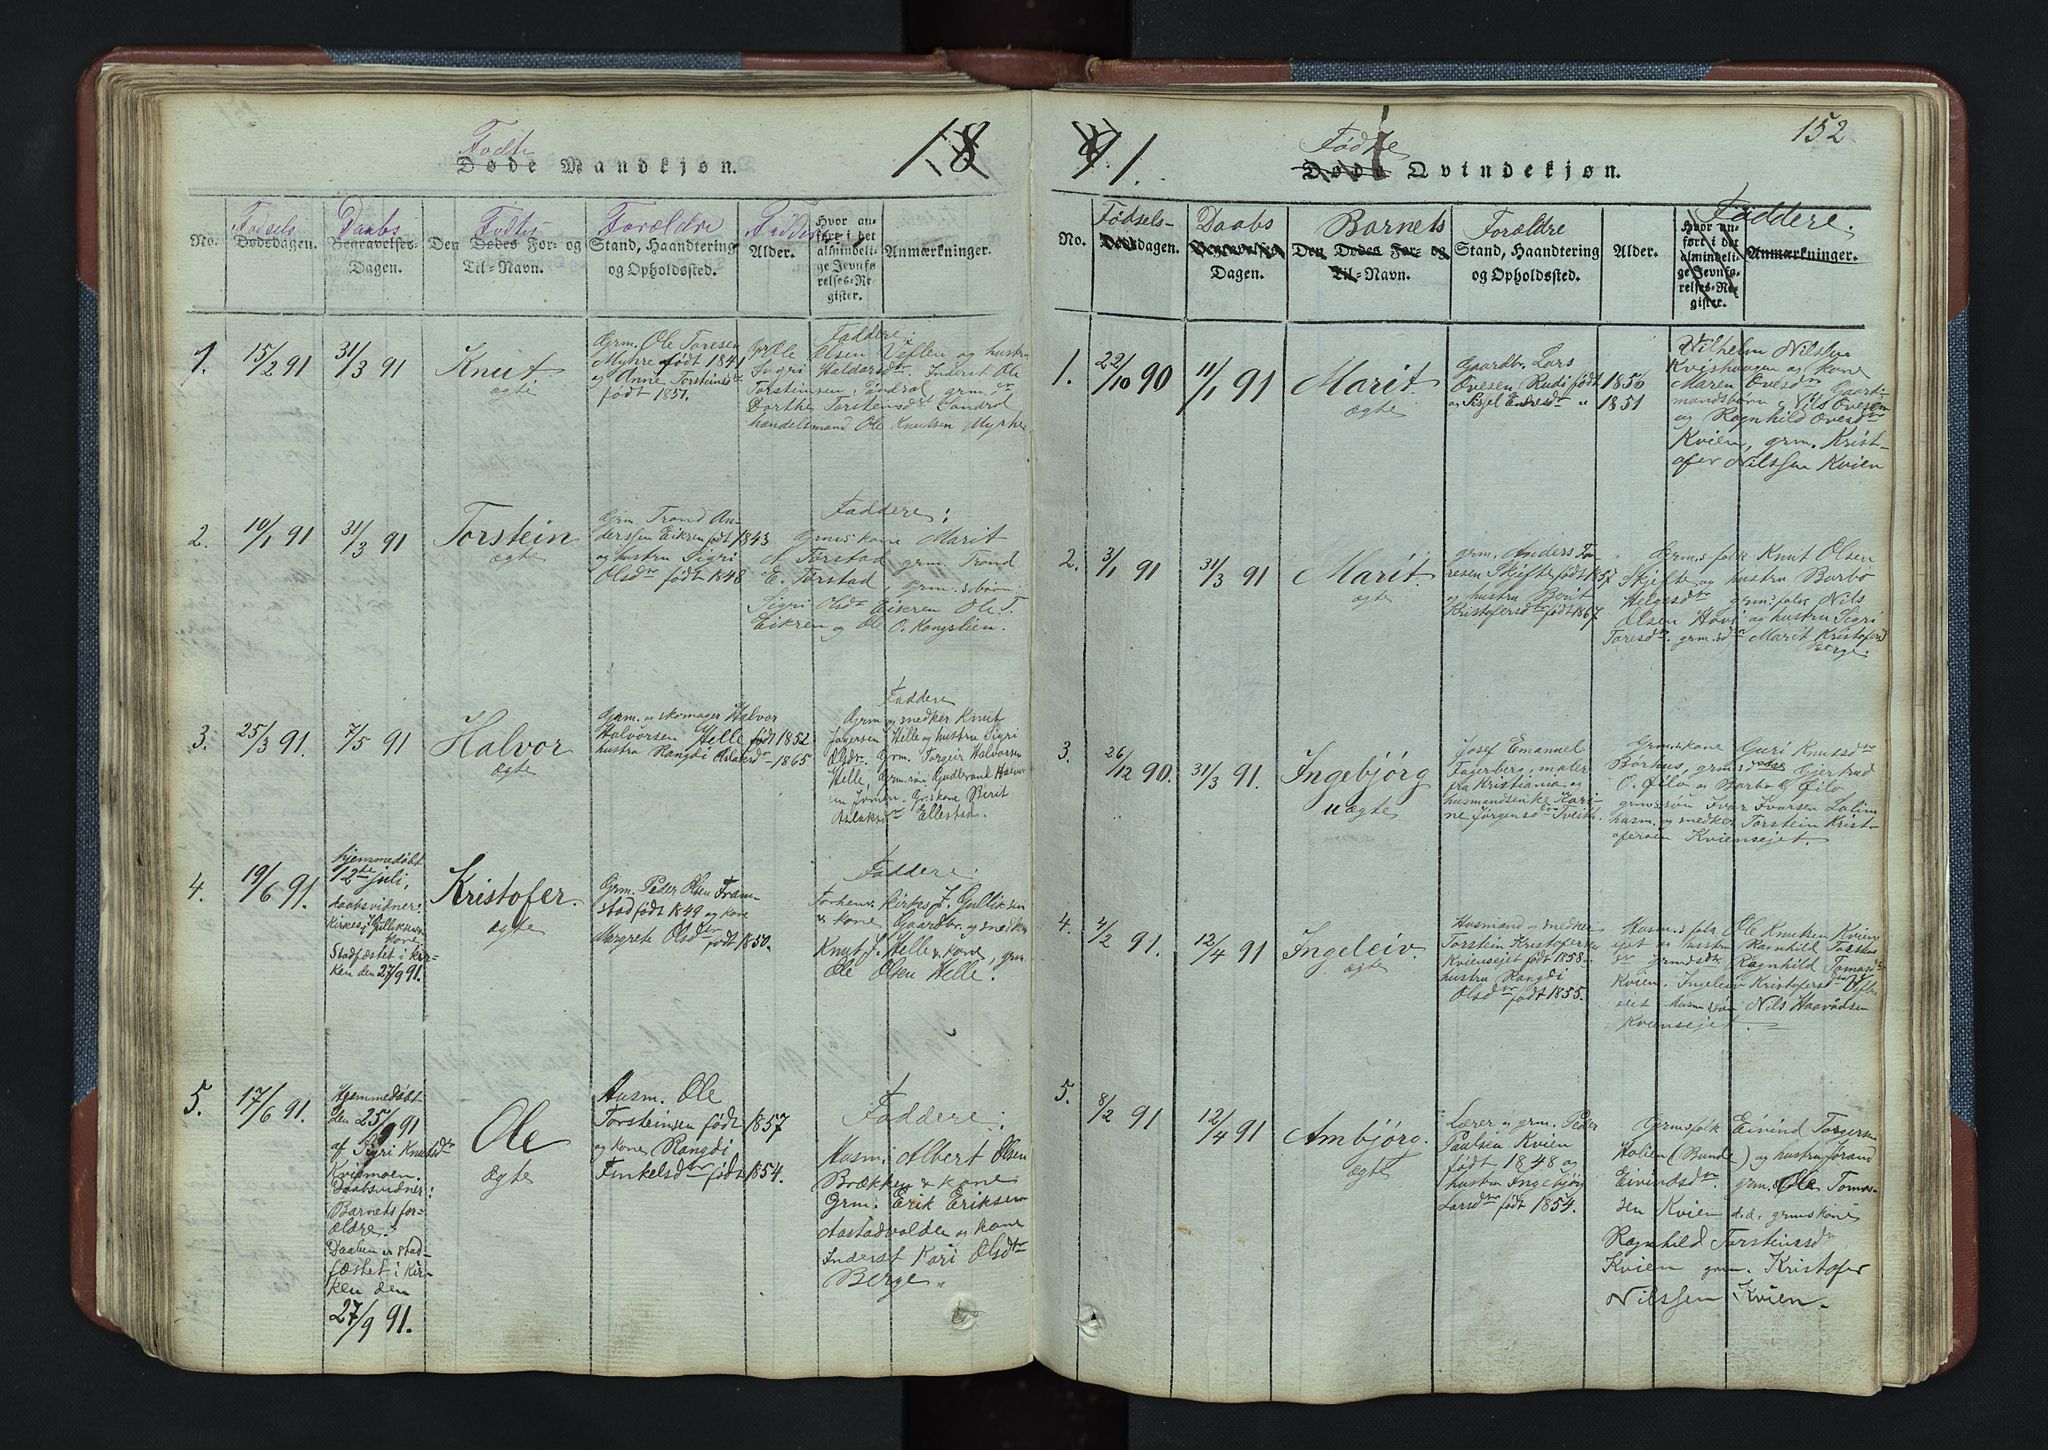 152
18 91.
Fødte
Døde Mandkjøn.
No.
Fødsels
Dødsdagen.
Daabs
Begravelses-
Dagen.
Fødtes
Den Dødes For- og
Til-Navn.
Forældre
Stand, Haandtering
og Opholdssted.
Faddere
Alder.
Hvor an-
ført i det
almindeli-
ge Jevnfø-
relses-Re-
gister.
Anmærkninger.
1.
15/2 91
31/3 91
Knut
ægte
Grm. Ole Toresen
Myhre født 1841
og Anne Torsteinsdtr
født 1851.
Faddere:
Ole Olsen Veflen og hustru
Sigri Haldorsdtr Inderst Ole
Torsteinsen Tindrol grm.d
Dorthe Torsteinsdtr Sandrol
handelsmand Ole Knutsen Myrhre
2.
10/1 91
31/3 91
Torstein
ægte
Grm. Trond An-
derssen Eikren født 1843
og hustru Sigri
Olsdtr født 1848
Faddere:
Grmskone Marit
O. Torstad grm. Trond
E. Torstad, Grm.sbørn
Sigri Olsdtr Eikren Ole T.
Eikren og Ole O. Kongslien.
3.
25/3 91.
7/5 91
Halvor
ægte
Grm. og skomager Halvor
Halvorsen Helle født 1852
hustru Rangdi Aslaksdtr 1865
Faddere
Grm og snedker Knut
Jogersen Helle og hustru Sigri
Olsdtr. Grm. Torgeir Halvorsen
Helle Grm.søn Gudbrand Halvor
sen Jømen. Gr.skone Berit
Aslaksdtr Ellestad.
4.
19/6 91.
hjemmedøbt
12te juli,
daabsvidner:
Kirkes. J. Gulliksen
kone
Stadfæstet i kir-
ken den 27/9 91.
Kristofer.
ægte
Grm. Peder Olsen Fram-
stad født 1849 og kone
Margrete Olsdtr født 1850.
Faddere:
Forhenv. Kirkes J. Gulliksen
& kone Gaardbr. og snedker
Knut J. Helle & kone, grm
Ole Olsen Helle.
5.
17/6 91.
Hjemmedøbt
den 25/9 91
af Sigri Knutsdtr
Kvismoen.
Daabsvidner:
Barnets for-
ældre.
Daaben er stad-
fæstet i kir-
ken den
27/9 91.
Ole
ægte
Husm. Ole
Torsteinsen født 1857
og kone Rangdi
Finkelsdtr født 1854.
Faddere:
Husm: Albert Olsen
Brækken & kone
Grm: Erik Eriksen
Aastadvolden og kone
Inderst Kari Olsdtr
Berge
Fødte
Døde Qvindekjøn.
No.
Fødsels-
Dødsdagen.
Daabs
Begravelses
Dagen.
Barnets
Den Dødes For- og
Til-Navn.
Forældre
Stand, Haandtering
og Opholdssted.
Alder.
Hvor an-
ført i det
almindeli-
ge Jevnfø-
relses-Re-
gister.
Faddere.
Anmærkninger.
1.
22/10 90
11/1 91
Marit
ægte
Gaardbr. Lars
Ovesen Rudi født 1856
og Sigel Endresdtr " 1851
Vilhelm Nilssen
Kvishaugen og kone
Maren Ovesdtr Gaard-
mandsbørn Nils Ovesen
og Ragnhild Ovesdtr
Kvien, grm. Krist-
ofer Nilssen Kvien
2.
3/1 91
31/3 91
Marit
ægte
grm. Anders To-
resen Skjefte født 1857
og hustru Berit
Kristofersdtr født 1867
Grm.sfolk Knut Olsen
Skjefte og hustru Barbo
Helgesdtr grm.sfolk Nils
Olsen Hovi og hustru Sigri
Toresdtr. grm.sdtr Marit Kristofersd
Berge.
3.
26/12 90.
31/3 91.
Ingebjørg
uægte
Josef Emanuel
Fagerberg, maler
fra Kristiania og
husmandsenke Kari-
ne Jørgensdtr Tveith
Grmskone Guri Knutsdtr
Børhus, grmsd Gjertrud
O. Øilo og Barbo O Øilo
grmssøn Ivar Ivarsen Lalim
husm. og snedker Torstein Krist-
ofersen Kviensejet.
4.
4/2 91.
12/4 91
Ingeleiv.
ægte
Husmand og snedker
Torstein Kristofersen
Kviensejet født 1858
hustru Rangdi
Olsdtr født 1855.
Husm.sfolk Ole Knutsen Kvien
ejet og hustru Ragnhild Torstens
dtr grmsdtr Ragnhild Tomasdtr
Kvien. Ingeleiv Kristofersdtr
eiet husm.søn Nils Haavadsen
Kviensejet.
5.
8/2 91
12/4 91
Ambjørg.
ægte
Lærer og grm. Peder
Paulsen Kvien
født 1848 og
hustru Ingebjørg
Larsdtr født 1854.
Grmsfolk Eivind Torgersen
Holien (Bunde) og hustru Jørand
Eivindsdtr. grm.s Ole Tomas-
sen Kvien d.d. grmskone
Ragnhild Torsteinsdtr
Kvien grm. Kristofer
Nilssen Kvien.